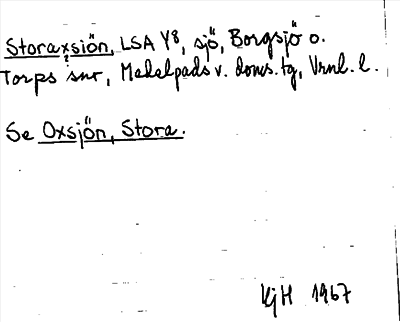 Storaxsiön, LSA Y8, sjö, Borgsjö o.
Torps snr, Medelpads v. doms.tg, Vrnl. l.
Se Oxsjön, Stora.
KjH 1967